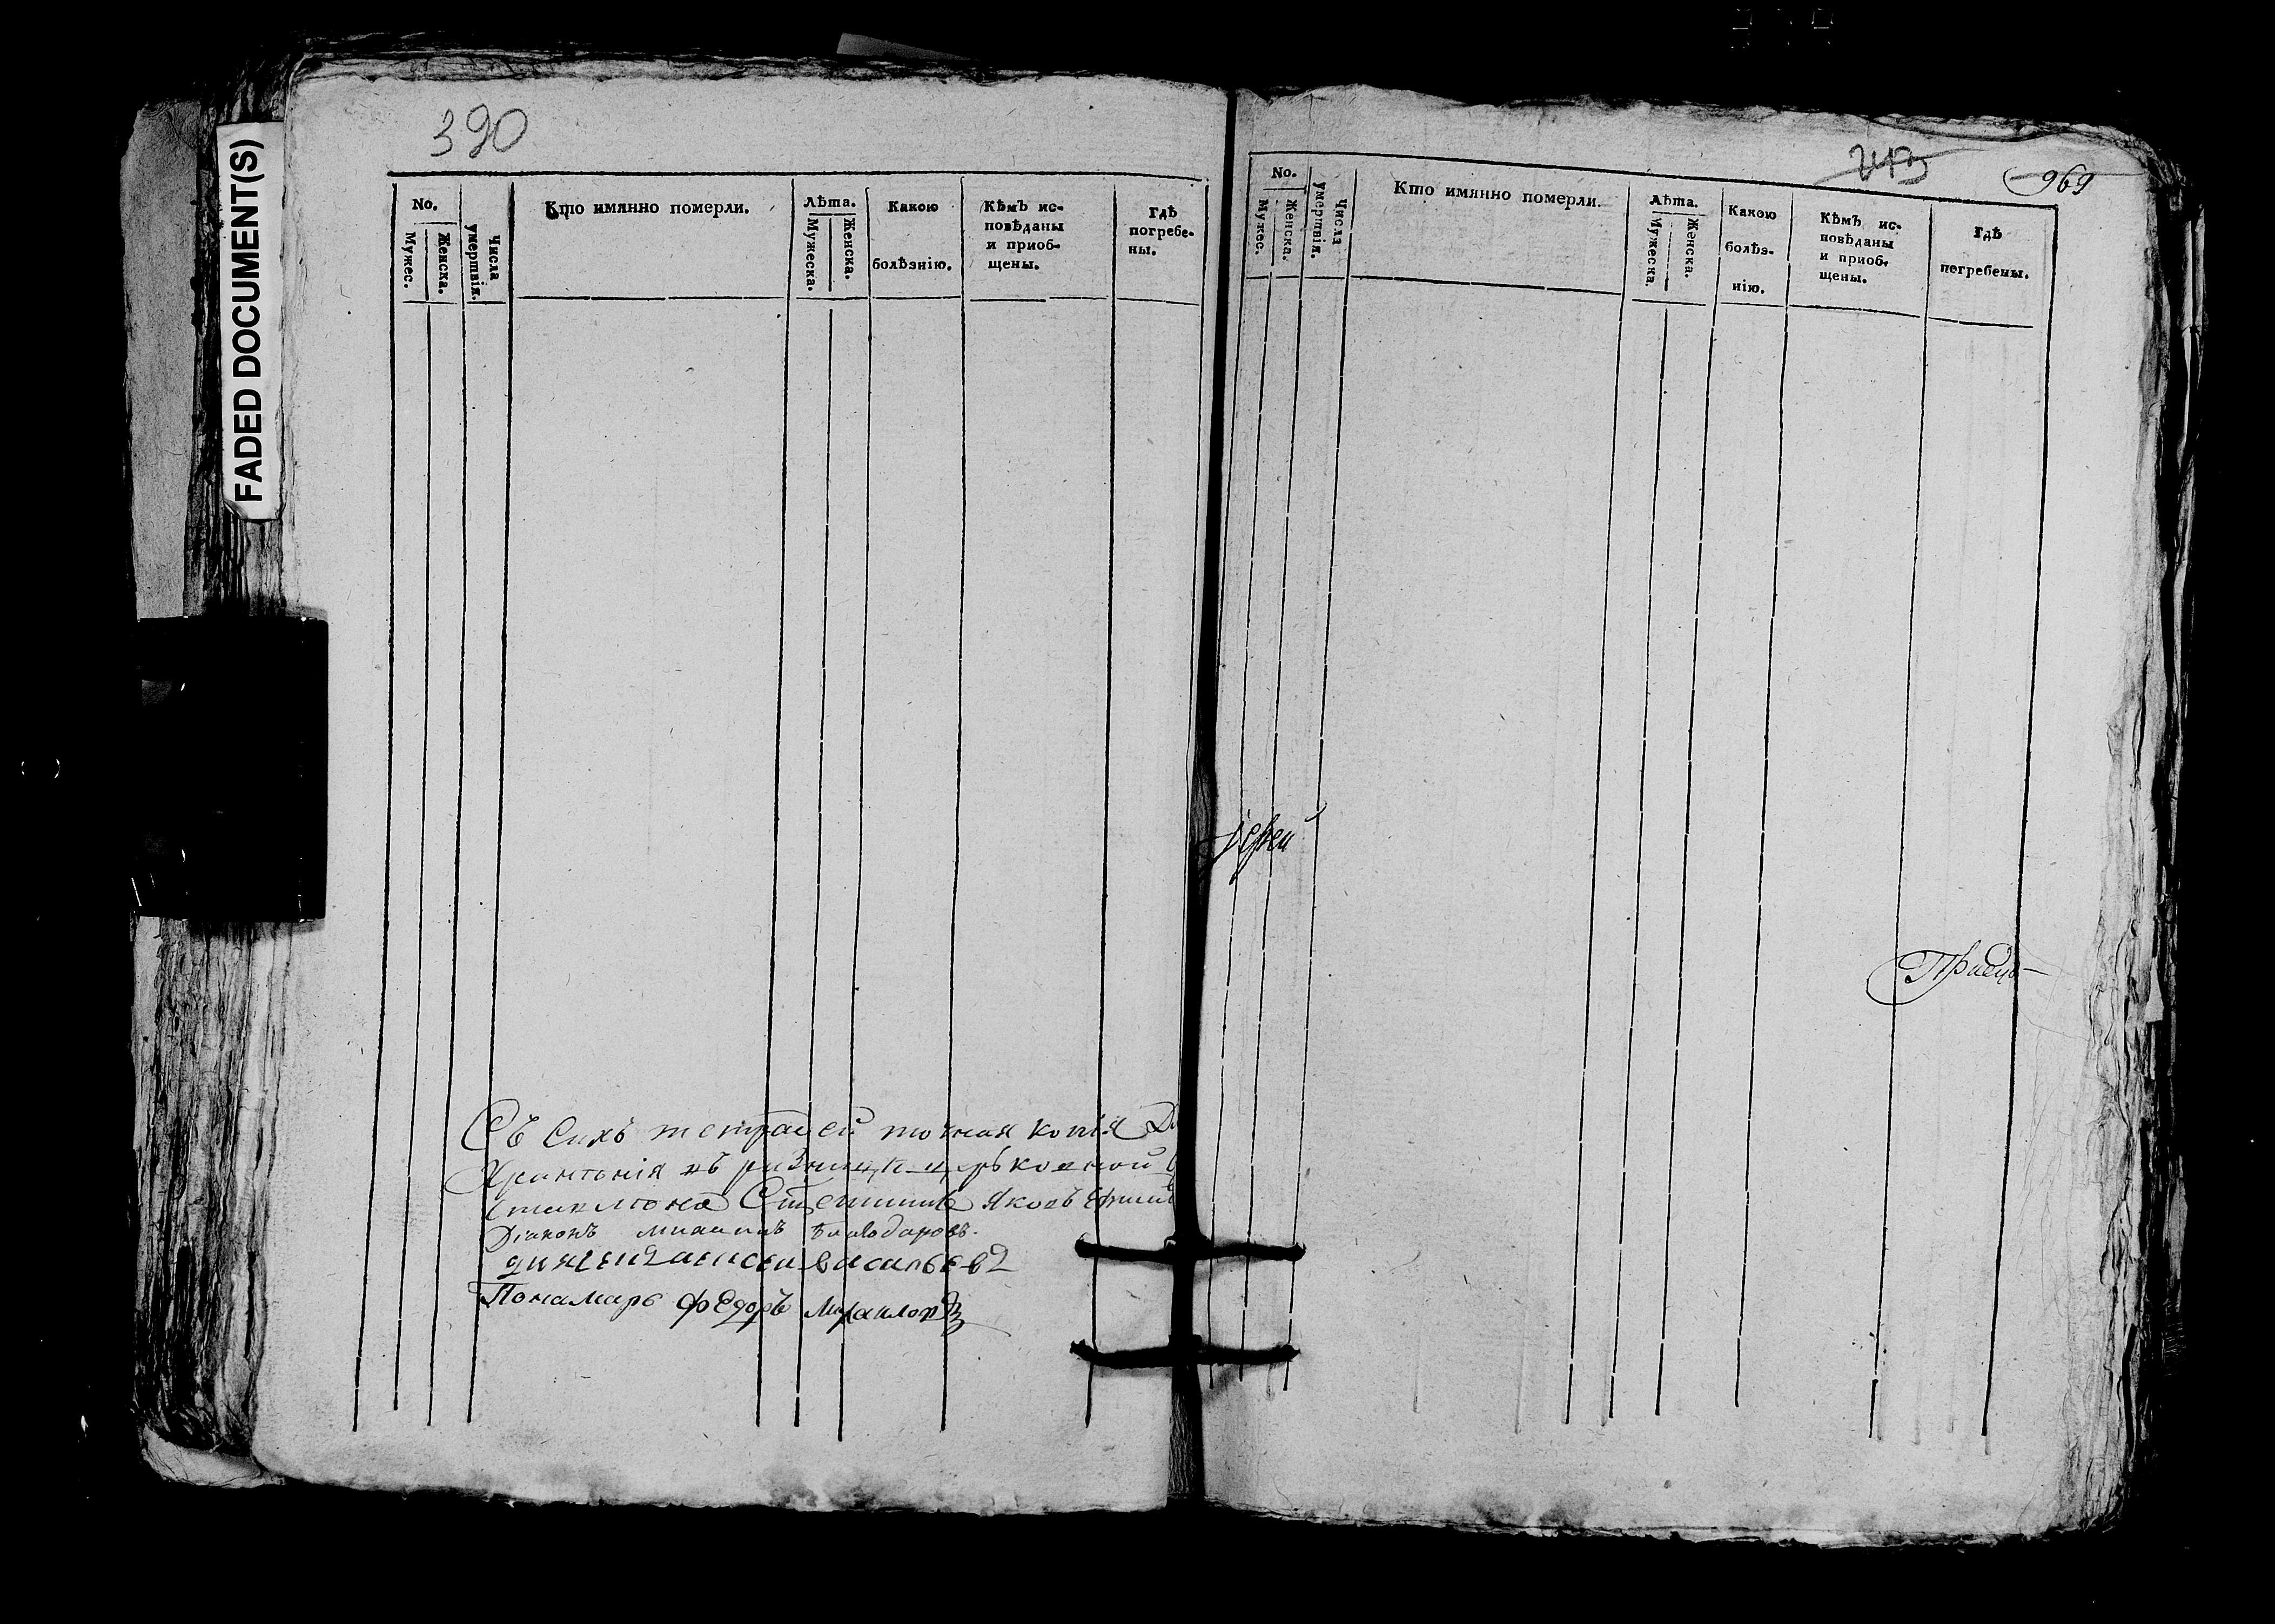 FADED DOCUMENT(S)
390
No.
Мужес.
Женска.
Числа умертвія.
Кто имянно померли.
Лѣта.
Мужеска.
Женска.
Какою
болѣзнію.
Кѣмъ ис-
повѣданы
и приоб-
щены.
Гдѣ
погребе-
ны.
Съ сихъ тетрадей точная копія
Хранѣнія въ ризницѣ церьковной
Яковъ
Діаконъ Благодаровъ.
васильевъ
Понамарь федоръ михаиловъ
969
No.
Мужес.
Женска.
Числа умертвія.
Кто имянно померли.
Лѣта.
Мужеска.
Женска.
Какою
болѣз-
нію.
Кѣмъ ис-
повѣданы
и приоб-
щены.
Гдѣ
погребены.
Іерей